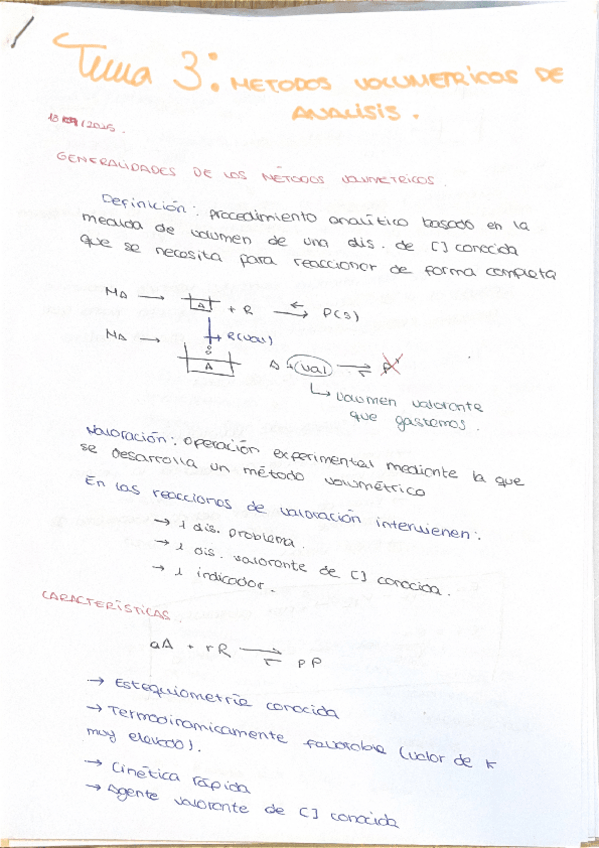 Tema 3: METODOS VOLUMETRICOS DE
ANALISIS.
/2025.
GENERALIDADES DE LOS MÉTODOS VOLUMETRICOS.
Definición: procedimiento analítico basado en la
medida de volumen de una dis. de [] conocida
que se necesita para reaccionar de forma completa
MA → A + R ⇄ P(s)
R(val)
MA → A
A + val ⇄ P
↳ volumen valorante
que gastemos.
Valoración: operación experimental mediante la que
se desarrolla un método volumétrico
En las reacciones de valoración intervienen:
→ 1 dis. problema.
→ 1 dis. valorante de [] conocida.
→ 1 indicador.
CARACTERÍSTICAS.
aA + rR ⇄ pP
→ Estequiometría conocida
→ Termodinamicamente favorable (valor de K
muy elevado).
→ Cinética rápida
→ Agente valorante de [] conocida